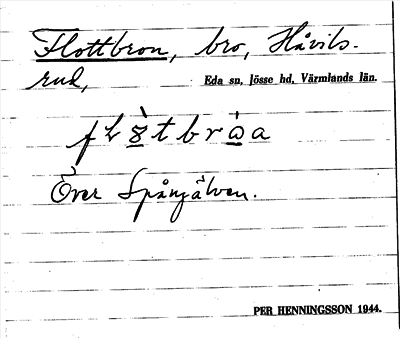 Flottbron, bro, Håvils-
rud, Eda sn, Jösse hd, Värmlands län.
Över Spångälven.
PER HENNINGSSON 1944.